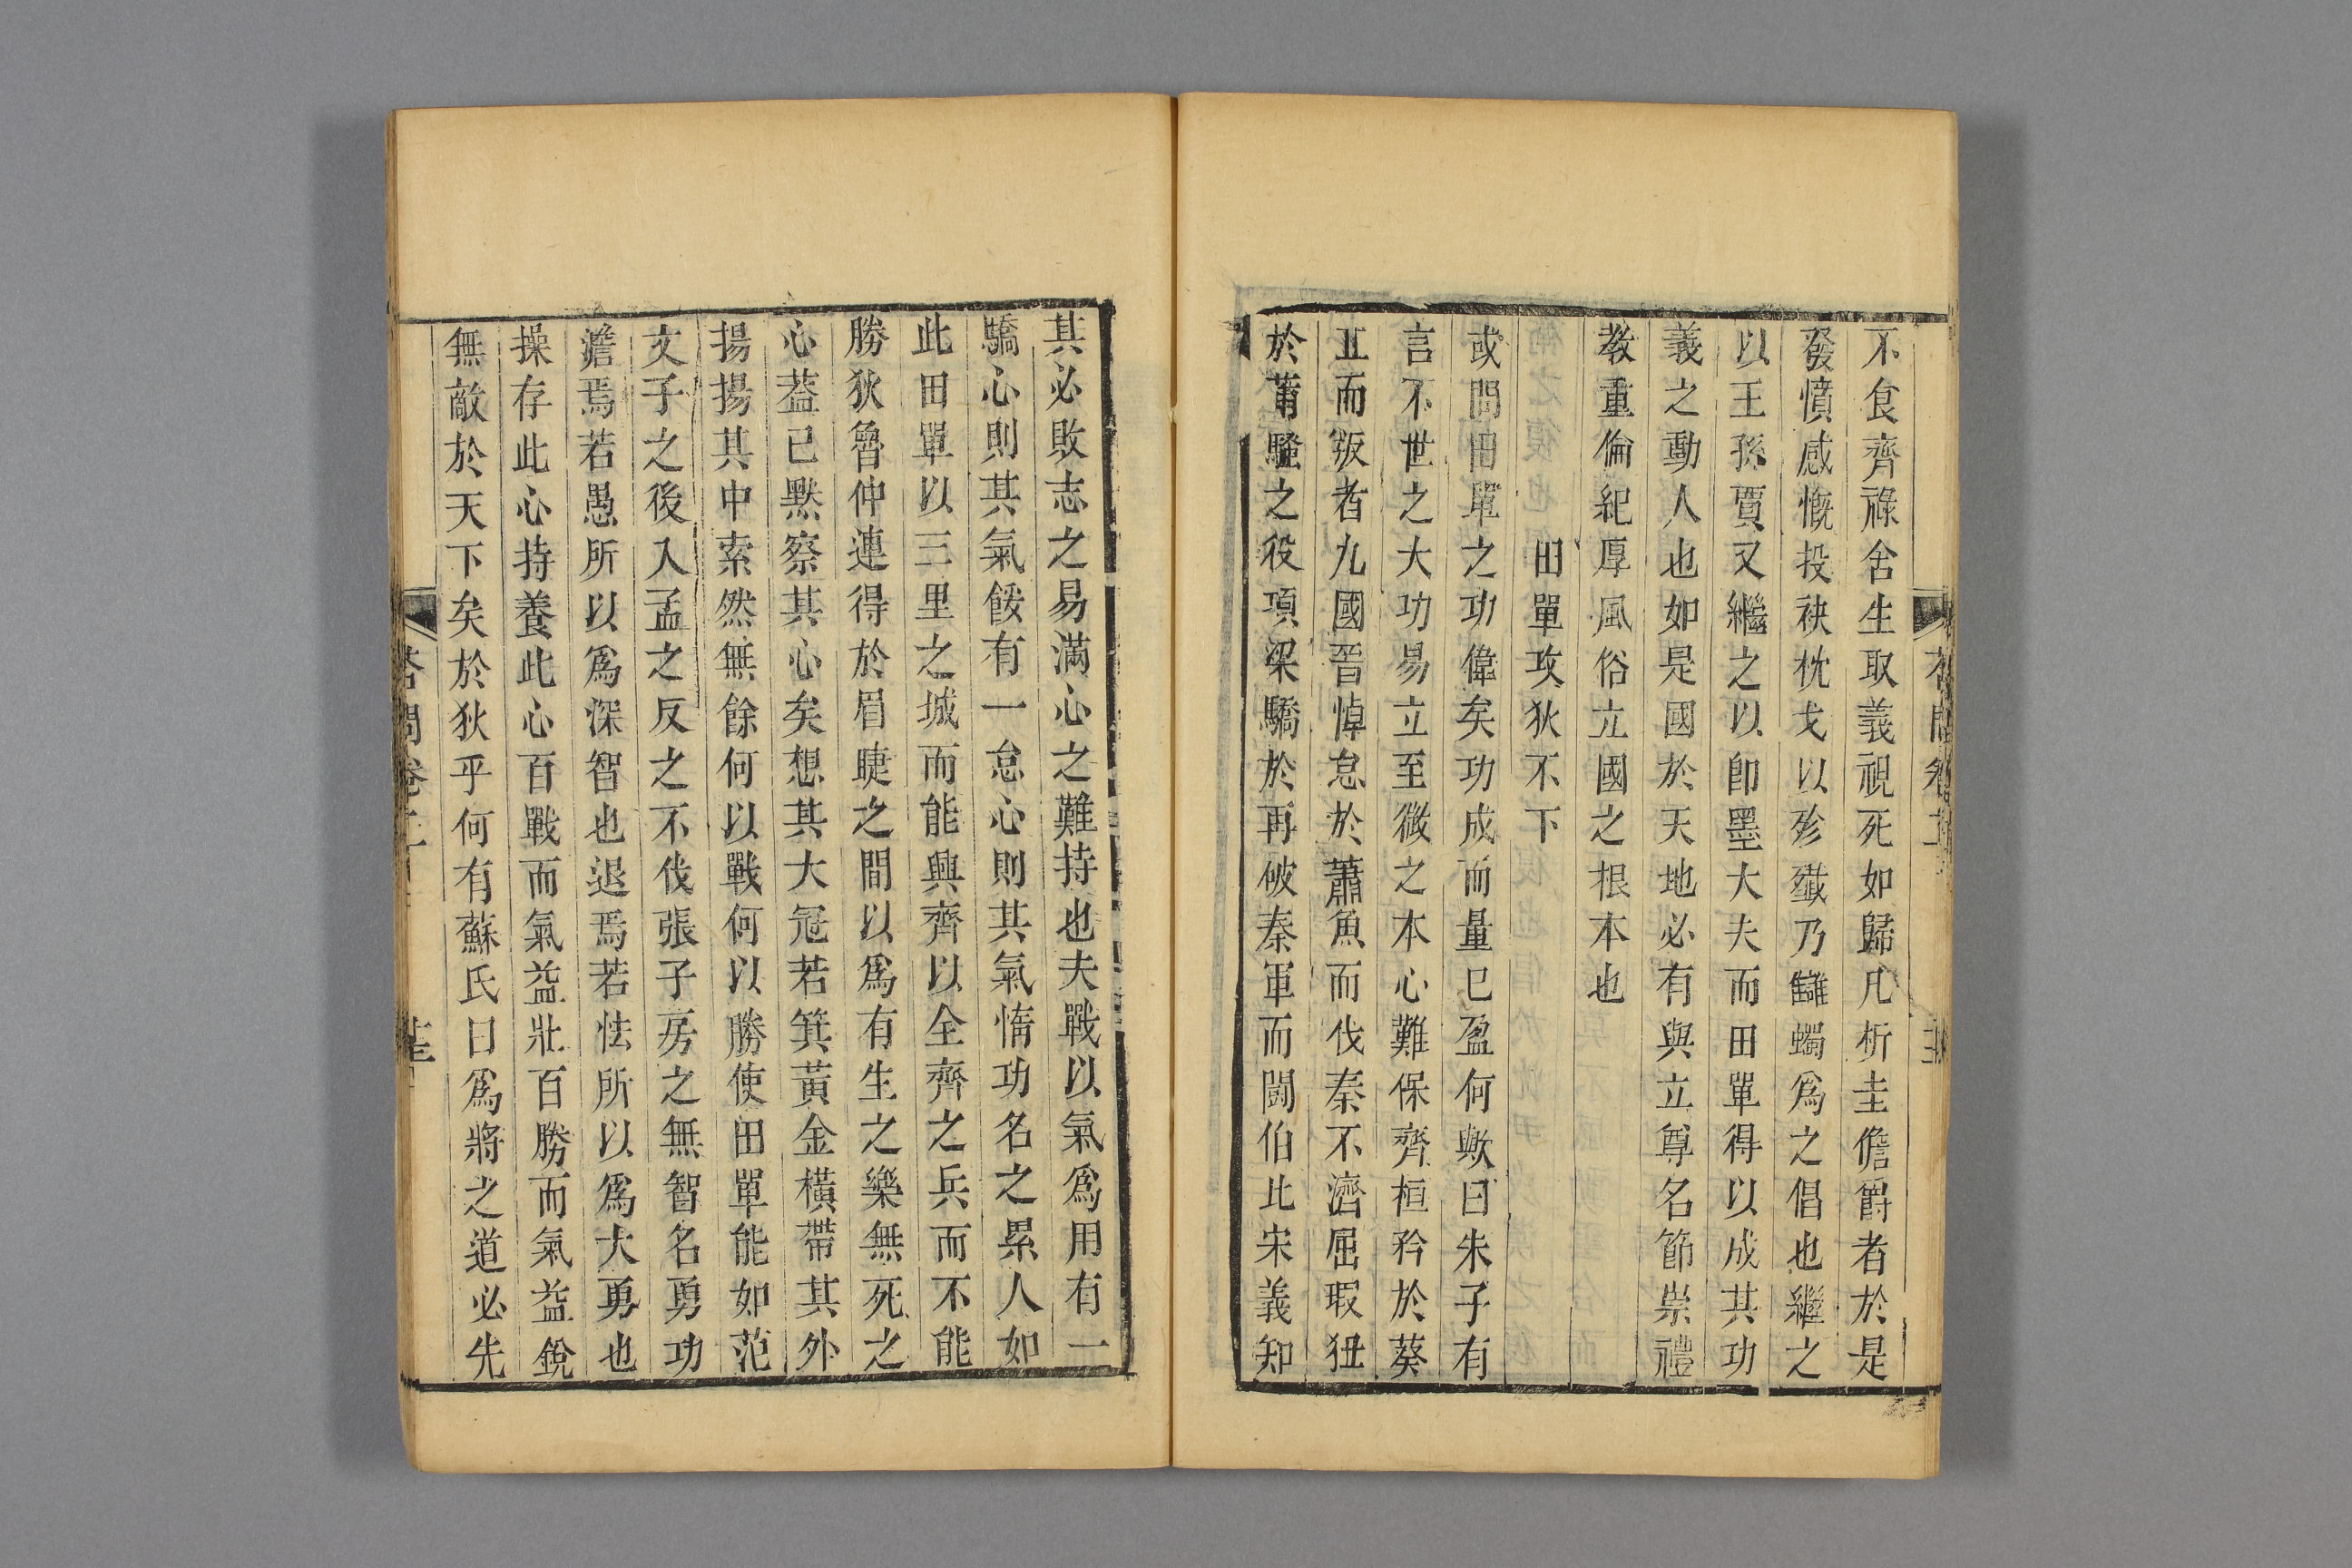 不食齊祿舍生取義視死如歸凡析圭儋爵者於是
發憤感慨投袂枕戈以殄殲乃讎蠋爲之倡也繼之
以王孫賈又繼之以卽墨大夫而田單得以成其功
義之動人也如是國於天地必有與立尊名節崇禮
教重倫紀厚風俗立國之根本也
田單攻狄不下
或問田單之功偉矣功成而量已盈何歟曰朱子有
言不世之大功易立至微之本心難保齊桓矜於葵
丘而叛者九國晉悼怠於蕭魚而伐秦不濟屈瑕狃
於蒲騷之役項梁驕於再破秦軍而鬬伯比宋義知
其必敗志之易滿心之難持也夫戰以氣爲用有一
驕心則其氣餒有一怠心則其氣惰功名之累人如
此田單以三里之城而能興齊以全齊之兵而不能
勝狄魯仲連得於眉睫之間以爲有生之樂無死之
心葢已黙察其心矣想其大冠若箕黃金橫帶其外
揚揚其中索然無餘何以戰何以勝使田單能如范
文子之後入孟之反之不伐張子房之無智名勇功
澹焉若愚所以爲深智也退焉若怯所以爲大勇也
操存此心持養此心百戰而氣益壯百勝而氣益銳
無敵於天下矣於狄乎何有蘇氏曰爲將之道必先
答問卷二